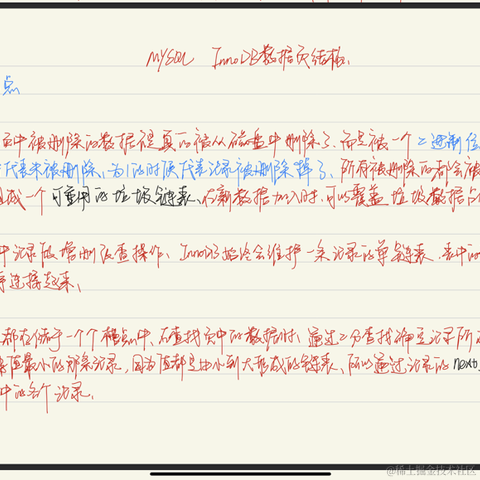 MYSQL InnoDB数据页结构.
点
页中被删除的数据不是真的被从磁盘中删除了,而是被一个二进制位
代表未被删除,为1的时候代表记录被删除掉了。所有被删除的都会被
组成一个可重用的垃圾链表,在新数据加入时,可以覆盖垃圾数据占
中记录做增删改查操作,InnoDB始终会维护一条记录的单链表,表中的
序连接起来、
都存储于一个个槽点中,在查找页中的数据时,通过二分查找确定记录所
值最小的那条记录,因为值都是由小到大形成的链表,所以通过记录的next
中的各个记录、
@稀土掘金技术社区